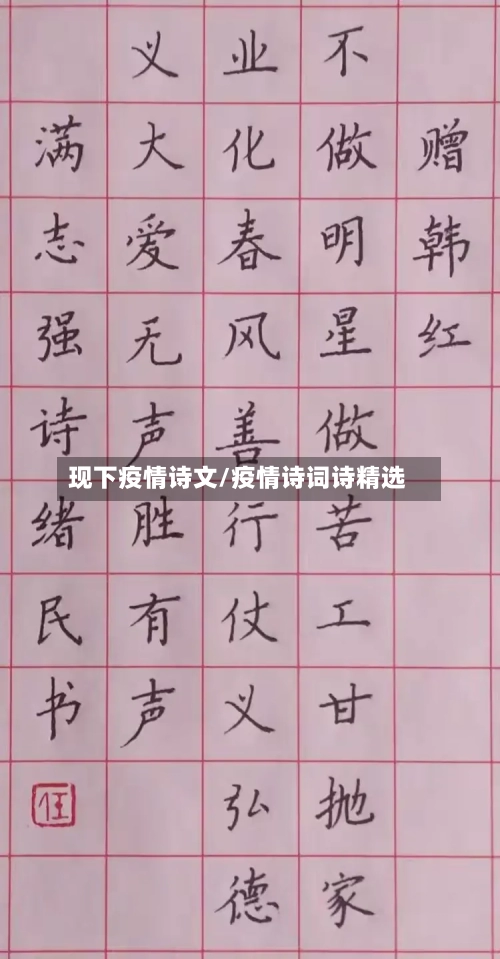 赠韩红
不做明星做苦工甘抛家
业化春风善行仗义弘德
义大爱无声胜有声
满志强诗绪民书
现下疫情诗文/疫情诗词诗精选